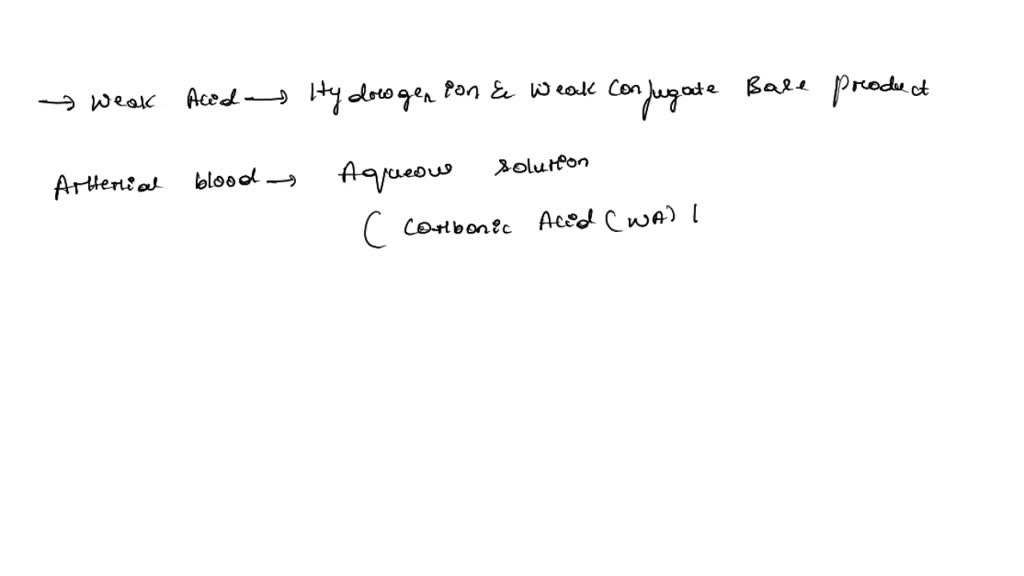 → Weak Acid → Hydrogen ion & Weak Conjugate Base product
Arterial blood → Aqueous solution
( Carbonic Acid (WA) |